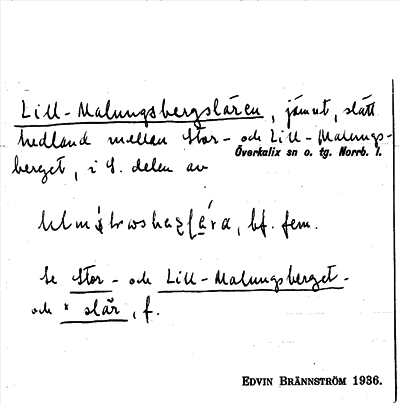 Lill-Malungsbergslären, jämnt, slätt
hedland mellan Stor- och Lill-Malungs-
Överkalix sn o. tg. Norrb. l.
berget, i S. delen av
bf. fem.
Se Stor- och Lill-Malungsberget-
och * slär, f.
EDVIN BRÄNNSTRÖM 1936.